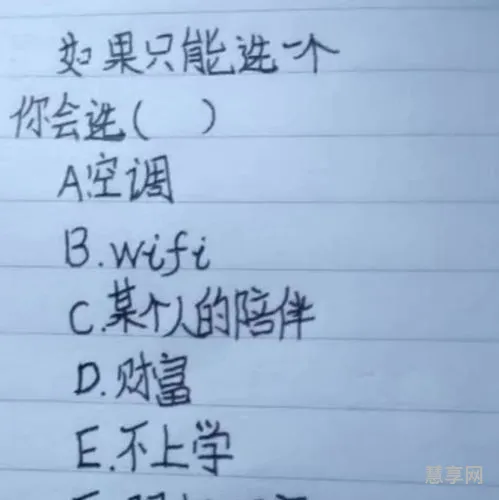 如果只能选一个
你会选( )
A.空调
B.wifi
C.某个人的陪伴
D.财富
E.不上学
慧享网